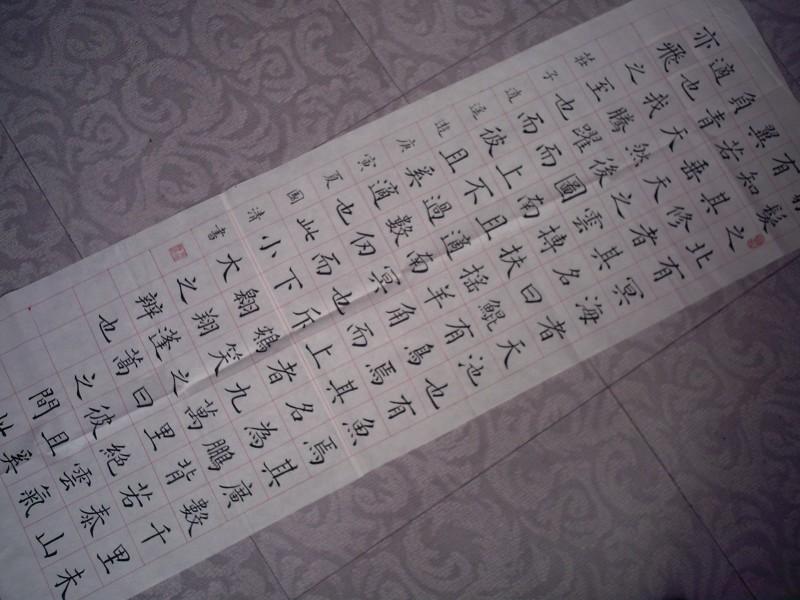 髮之北有冥海者天池也有魚焉其廣數千里未
有知其修者其名曰鯤有鳥焉其名為鵬背若泰山
翼若垂天之雲摶扶搖羊角而上者九萬里絕雲氣
負青天然後圖南且適南冥也斥鷃笑之曰彼且奚
適也我騰躍而上不過數仞而下翱翔蓬蒿之間此
亦飛之至也而彼且奚適也此小大之辨也
莊子逍遙遊庚寅夏國清書